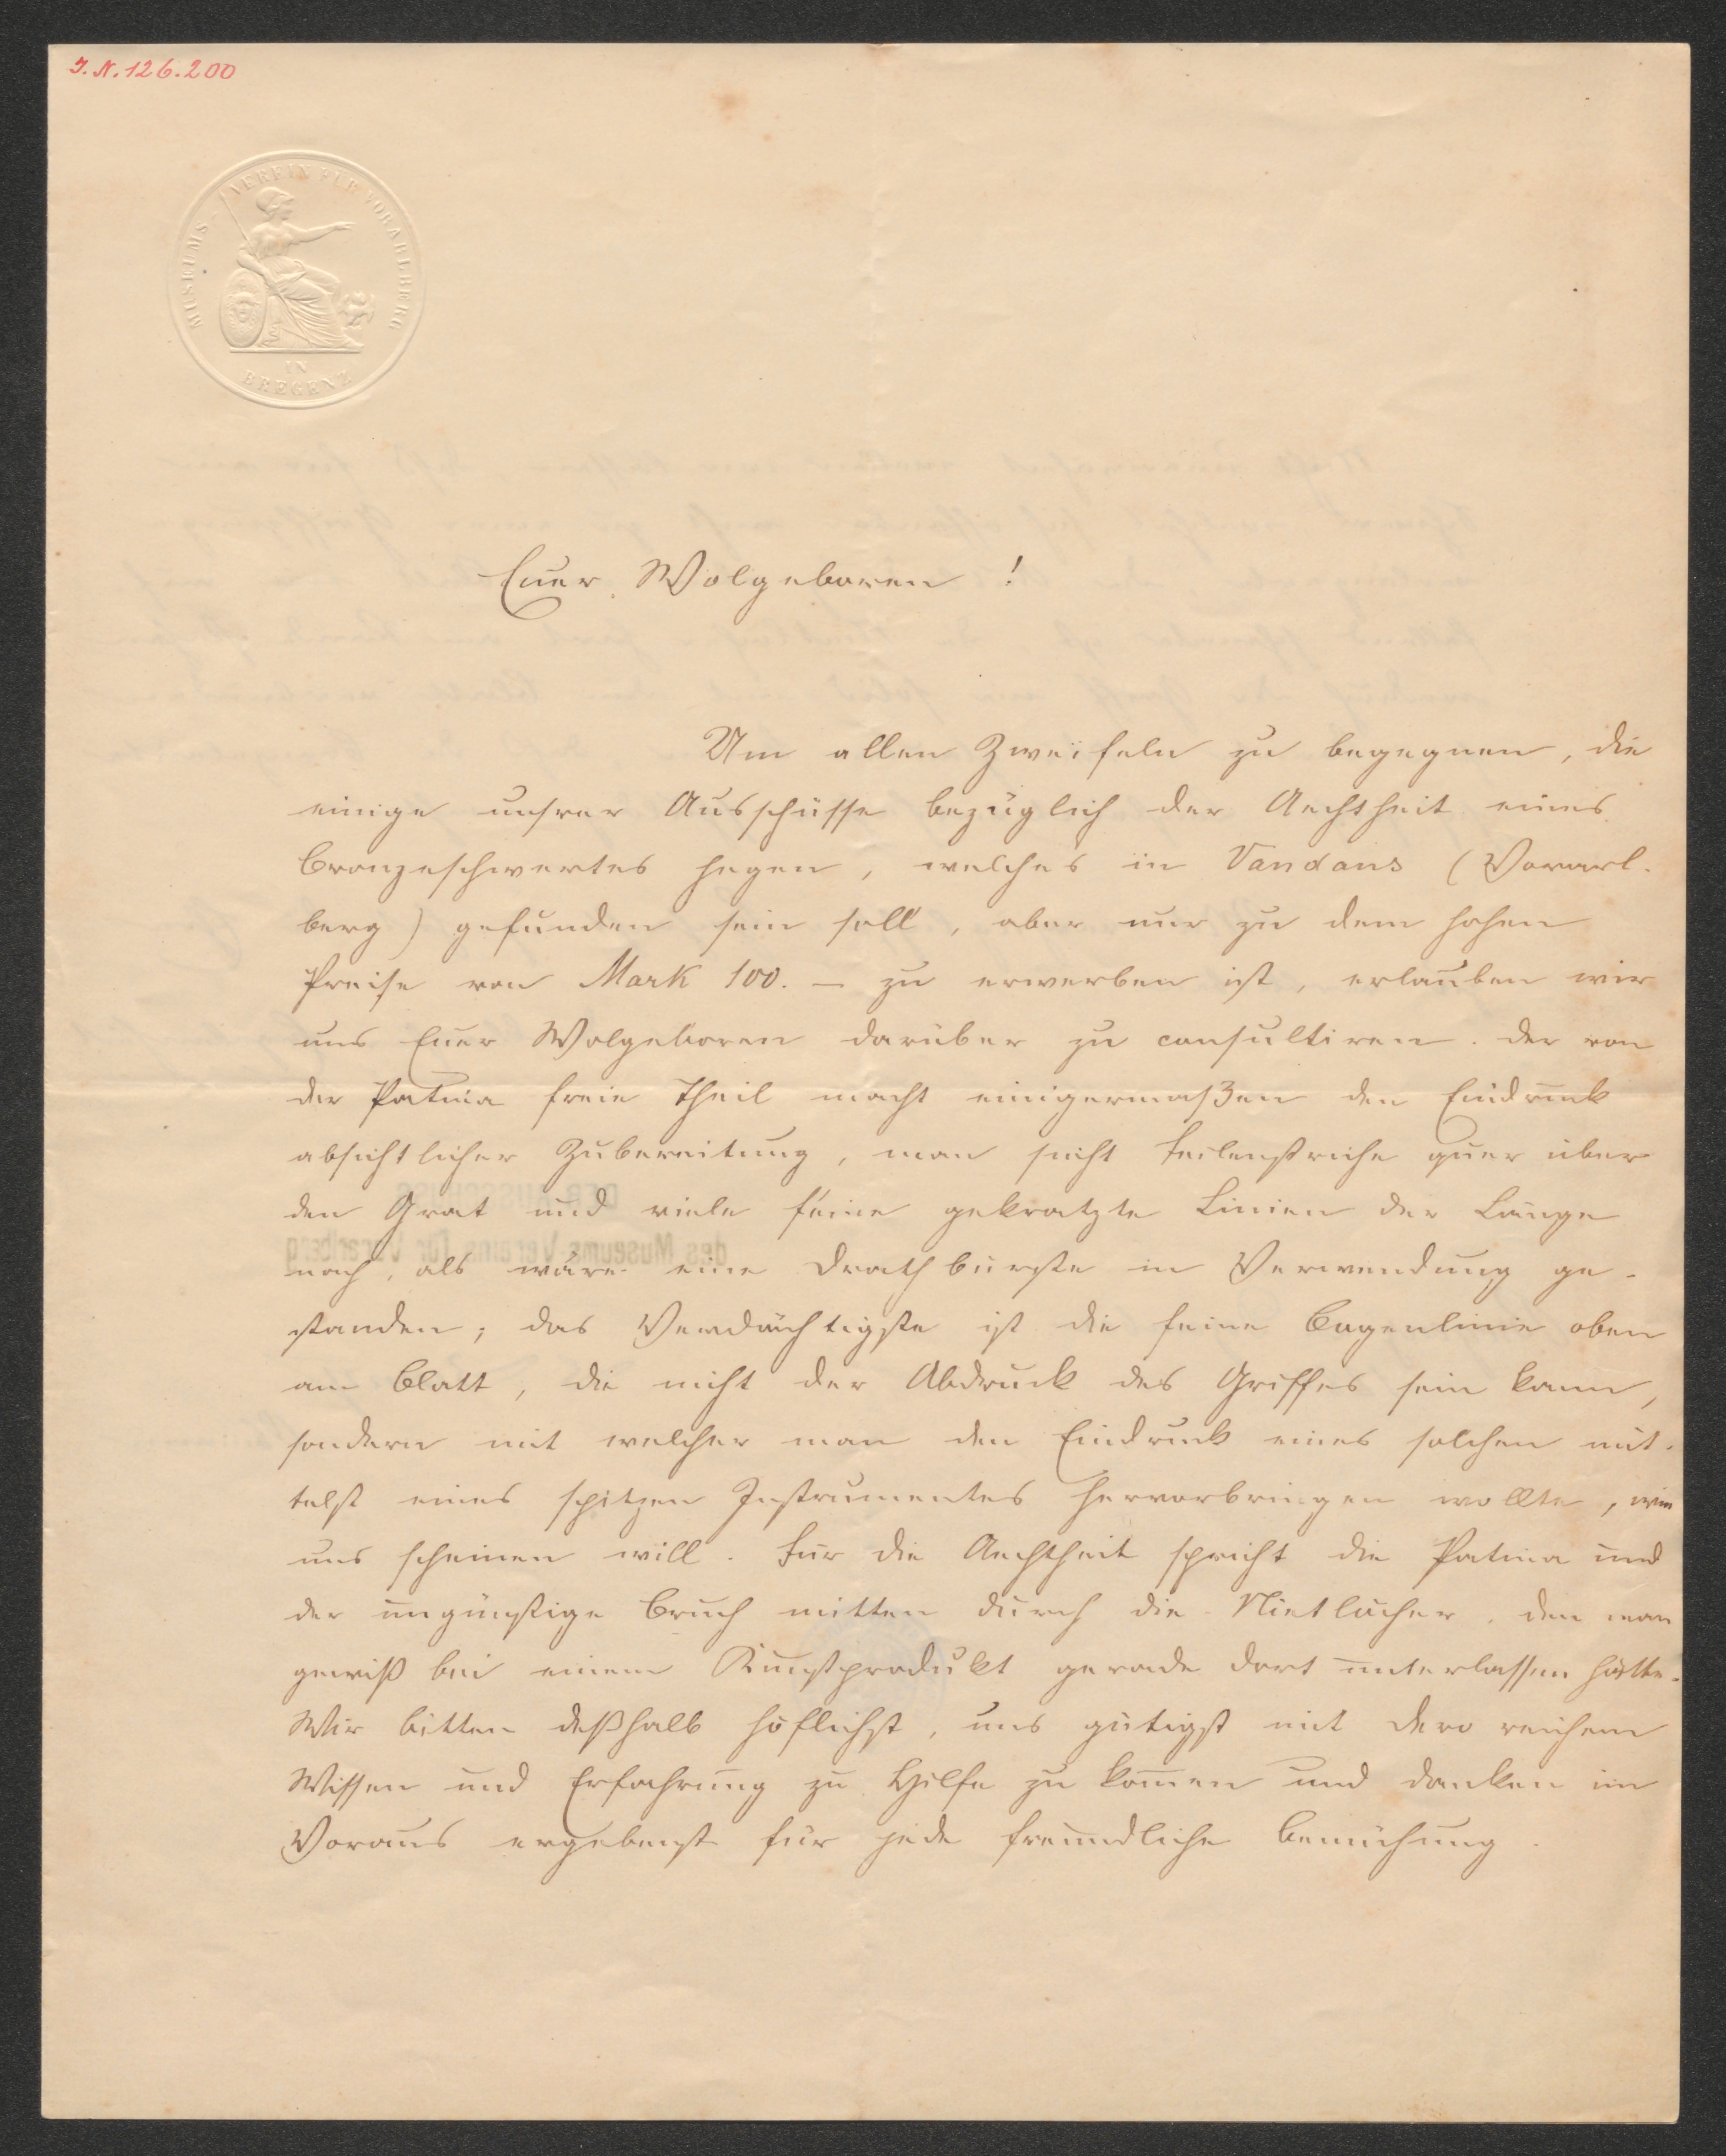 J. N. 126.200
MUSEUMS-VEREIN FÜR VORARLBERG
IN
BREGENZ
Euer Wolgeboren !
Um allen Zweifeln zu begegnen, die
einige unsrer Ausschüsse bezüglich der Aechtheit eines
Bronzeschwertes hegen, welches in Vandans (Vorarl-
berg) gefunden sein soll, aber nur zu dem hohen
Preise von Mark 100.— zu erwerben ist, erlauben wir
uns Euer Wolgeboren darüber zu consultiren. Der von
der Patina freie Theil macht einigermaßen den Eindruck
absichtlicher Zubereitung, man sieht Feilenstriche quer über
den Grat und viele feine gekratzte Linien der Länge
nach, als wäre eine Drathbürste in Verwendung ge-
standen; das Verdächtigste ist die feine Bogenlinie oben
am Blatt, die nicht der Abdruck des Griffes sein kann,
sondern mit welcher man den Eindruck eines solchen mit-
telst eines spitzen Instrumentes hervorbringen wollte, wie
uns scheinen will. Für die Aechtheit spricht die Patina und
der ungünstige Bruch mitten durch die Nietlöcher, den man
gewiß bei einem Kunstprodukt gerade dort unterlassen hätte.
Wir bitten deßhalb höflichst, uns gütigst mit dero reichem
Wissen und Erfahrung zu Hilfe zu kommen und danken im
Voraus ergebenst für jede freundliche Bemühung.